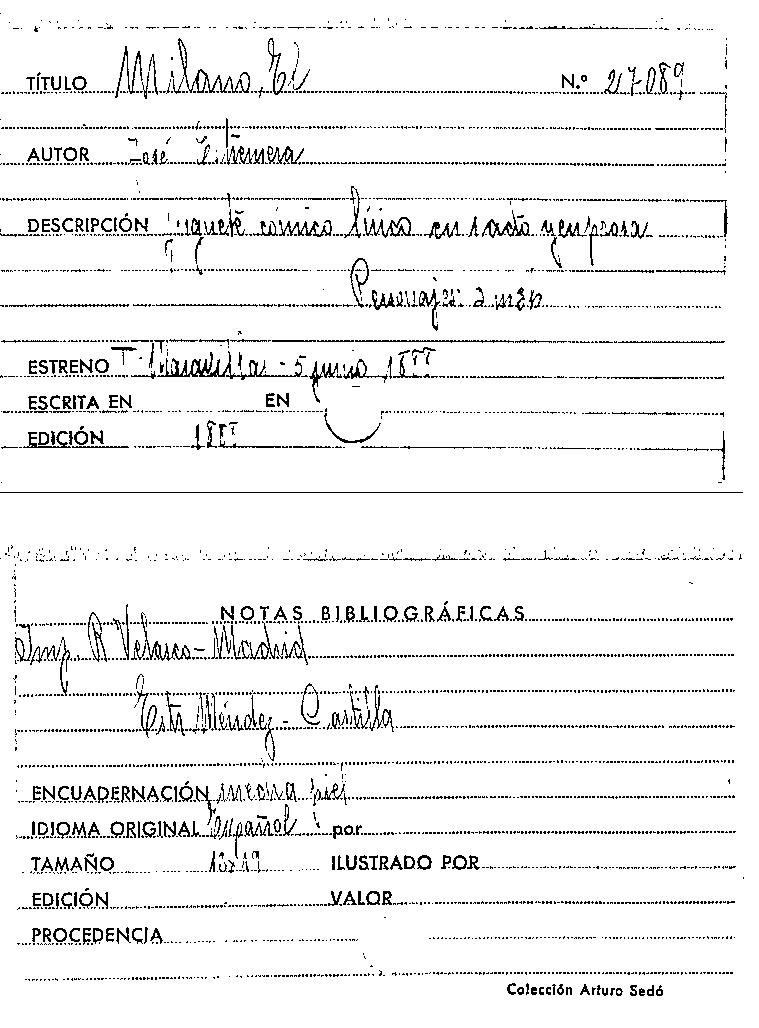 TÍTULO Milano, El N.º 27089
AUTOR José Estremera
DESCRIPCIÓN Juguete cómico lírico en 1 acto y en prosa
Personajes: 2 m 3 h
ESTRENO T. Maravillas - 5 junio 1888
ESCRITA EN EN
EDICIÓN 1888
NOTAS BIBLIOGRÁFICAS
Imp. R Velasco - Madrid
Méndez - Castilla
ENCUADERNACIÓN media piel
IDIOMA ORIGINAL Español por
TAMAÑO 13x19 ILUSTRADO POR
EDICIÓN VALOR
PROCEDENCIA
Colección Arturo Sedó